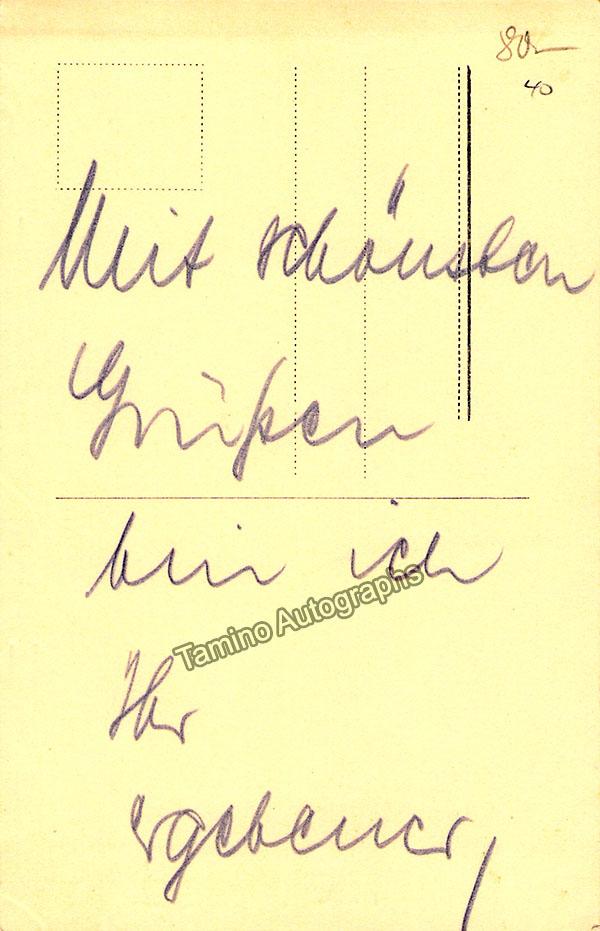 80-
40
Mit schönsten
Grüßen
bin ich
Tamino Autographs
Ihr
ergebener,